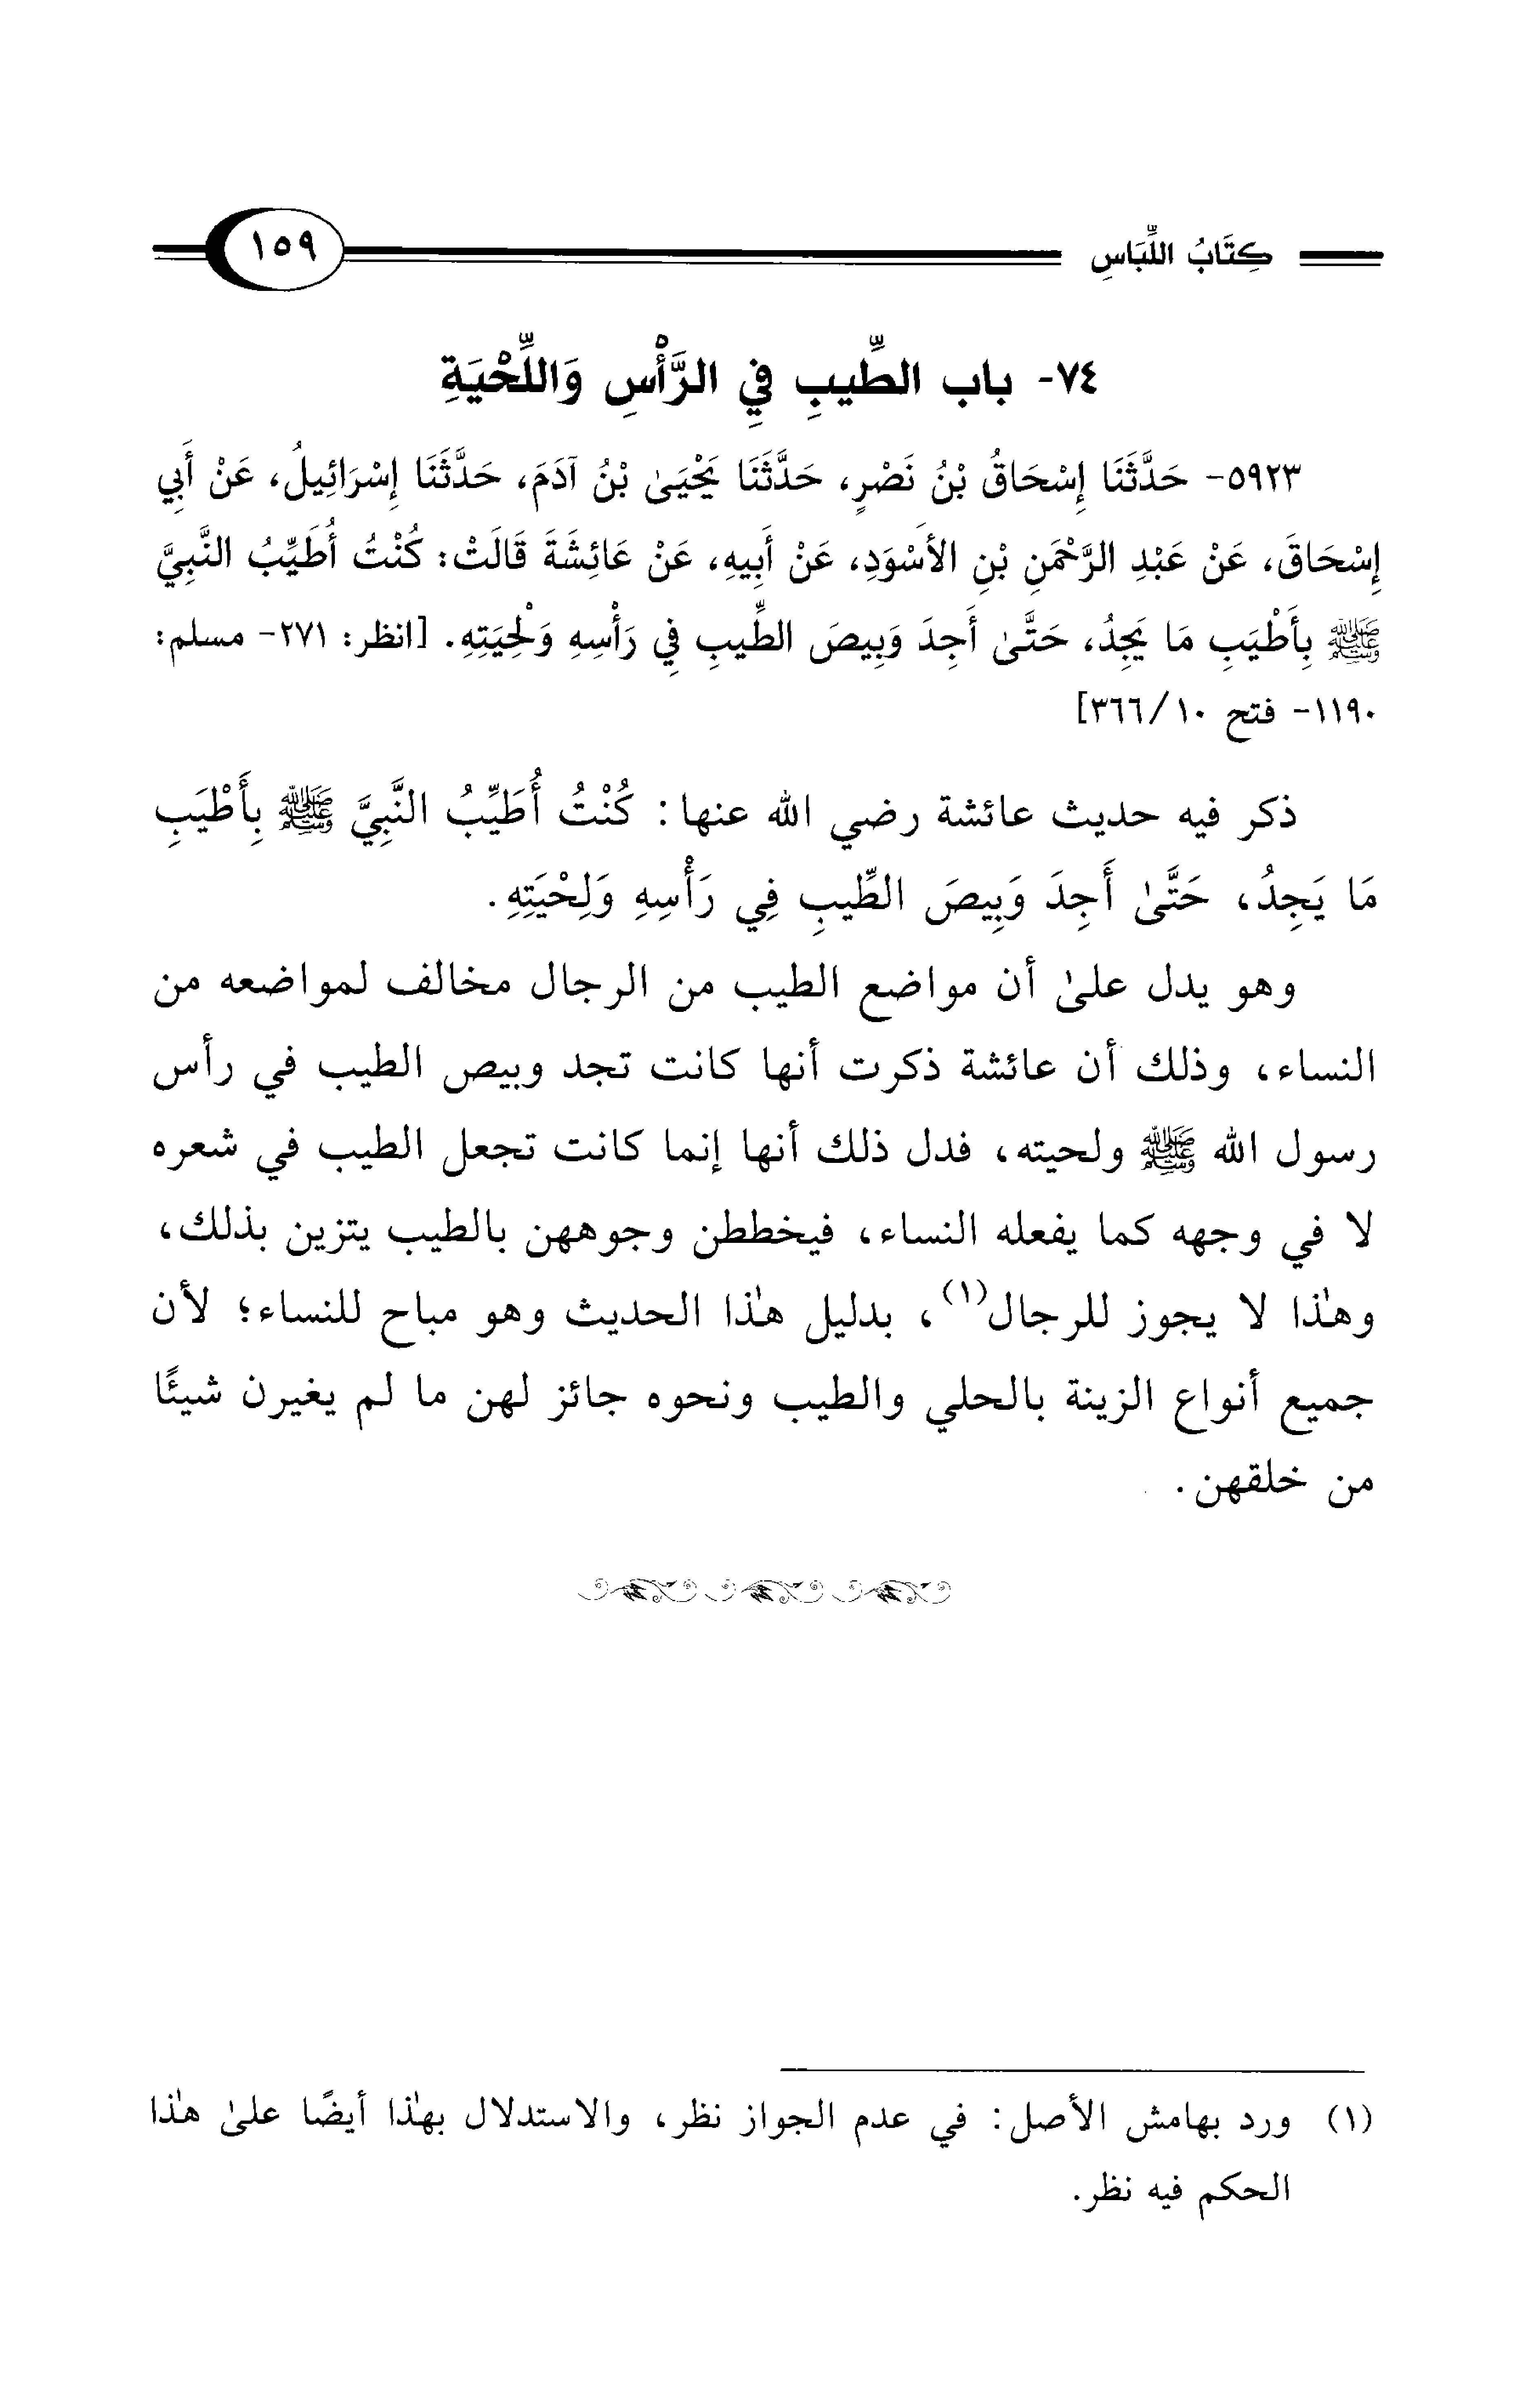 كِتَابُ اللِّبَاسِ ١٥٩
٧٤- باب الطِّيبِ فِي الرَّأْسِ وَاللِّحْيَةِ
٥٩٢٣- حَدَّثَنَا إِسْحَاقُ بْنُ نَصْرٍ، حَدَّثَنَا يَحْيَىٰ بْنُ آدَمَ، حَدَّثَنَا إِسْرَائِيلُ، عَنْ أَبِي
إِسْحَاقَ، عَنْ عَبْدِ الرَّحْمَنِ بْنِ الأَسْوَدِ، عَنْ أَبِيهِ، عَنْ عَائِشَةَ قَالَتْ: كُنْتُ أُطَيِّبُ النَّبِيَّ
ﷺ بِأَطْيَبِ مَا يَجِدُ، حَتَّىٰ أَجِدَ وَبِيصَ الطِّيبِ فِي رَأْسِهِ وَلِحْيَتِهِ. [انظر: ٢٧١- مسلم:
١١٩٠- فتح ١٠/٣٦٦]
ذكر فيه حديث عائشة رضي الله عنها: كُنْتُ أُطَيِّبُ النَّبِيَّ ﷺ بِأَطْيَبِ
مَا يَجِدُ، حَتَّىٰ أَجِدَ وَبِيصَ الطِّيبِ فِي رَأْسِهِ وَلِحْيَتِهِ.
وهو يدل علىٰ أن مواضع الطيب من الرجال مخالف لمواضعه من
النساء، وذلك أن عائشة ذكرت أنها كانت تجد وبيص الطيب في رأس
رسول الله ﷺ ولحيته، فدل ذلك أنها إنما كانت تجعل الطيب في شعره
لا في وجهه كما يفعله النساء، فيخططن وجوههن بالطيب يتزين بذلك،
وهٰذا لا يجوز للرجال(١)، بدليل هٰذا الحديث وهو مباح للنساء؛ لأن
جميع أنواع الزينة بالحلي والطيب ونحوه جائز لهن ما لم يغيرن شيئًا
من خلقهن.
(١) ورد بهامش الأصل: في عدم الجواز نظر، والاستدلال بهٰذا أيضًا علىٰ هٰذا
الحكم فيه نظر.